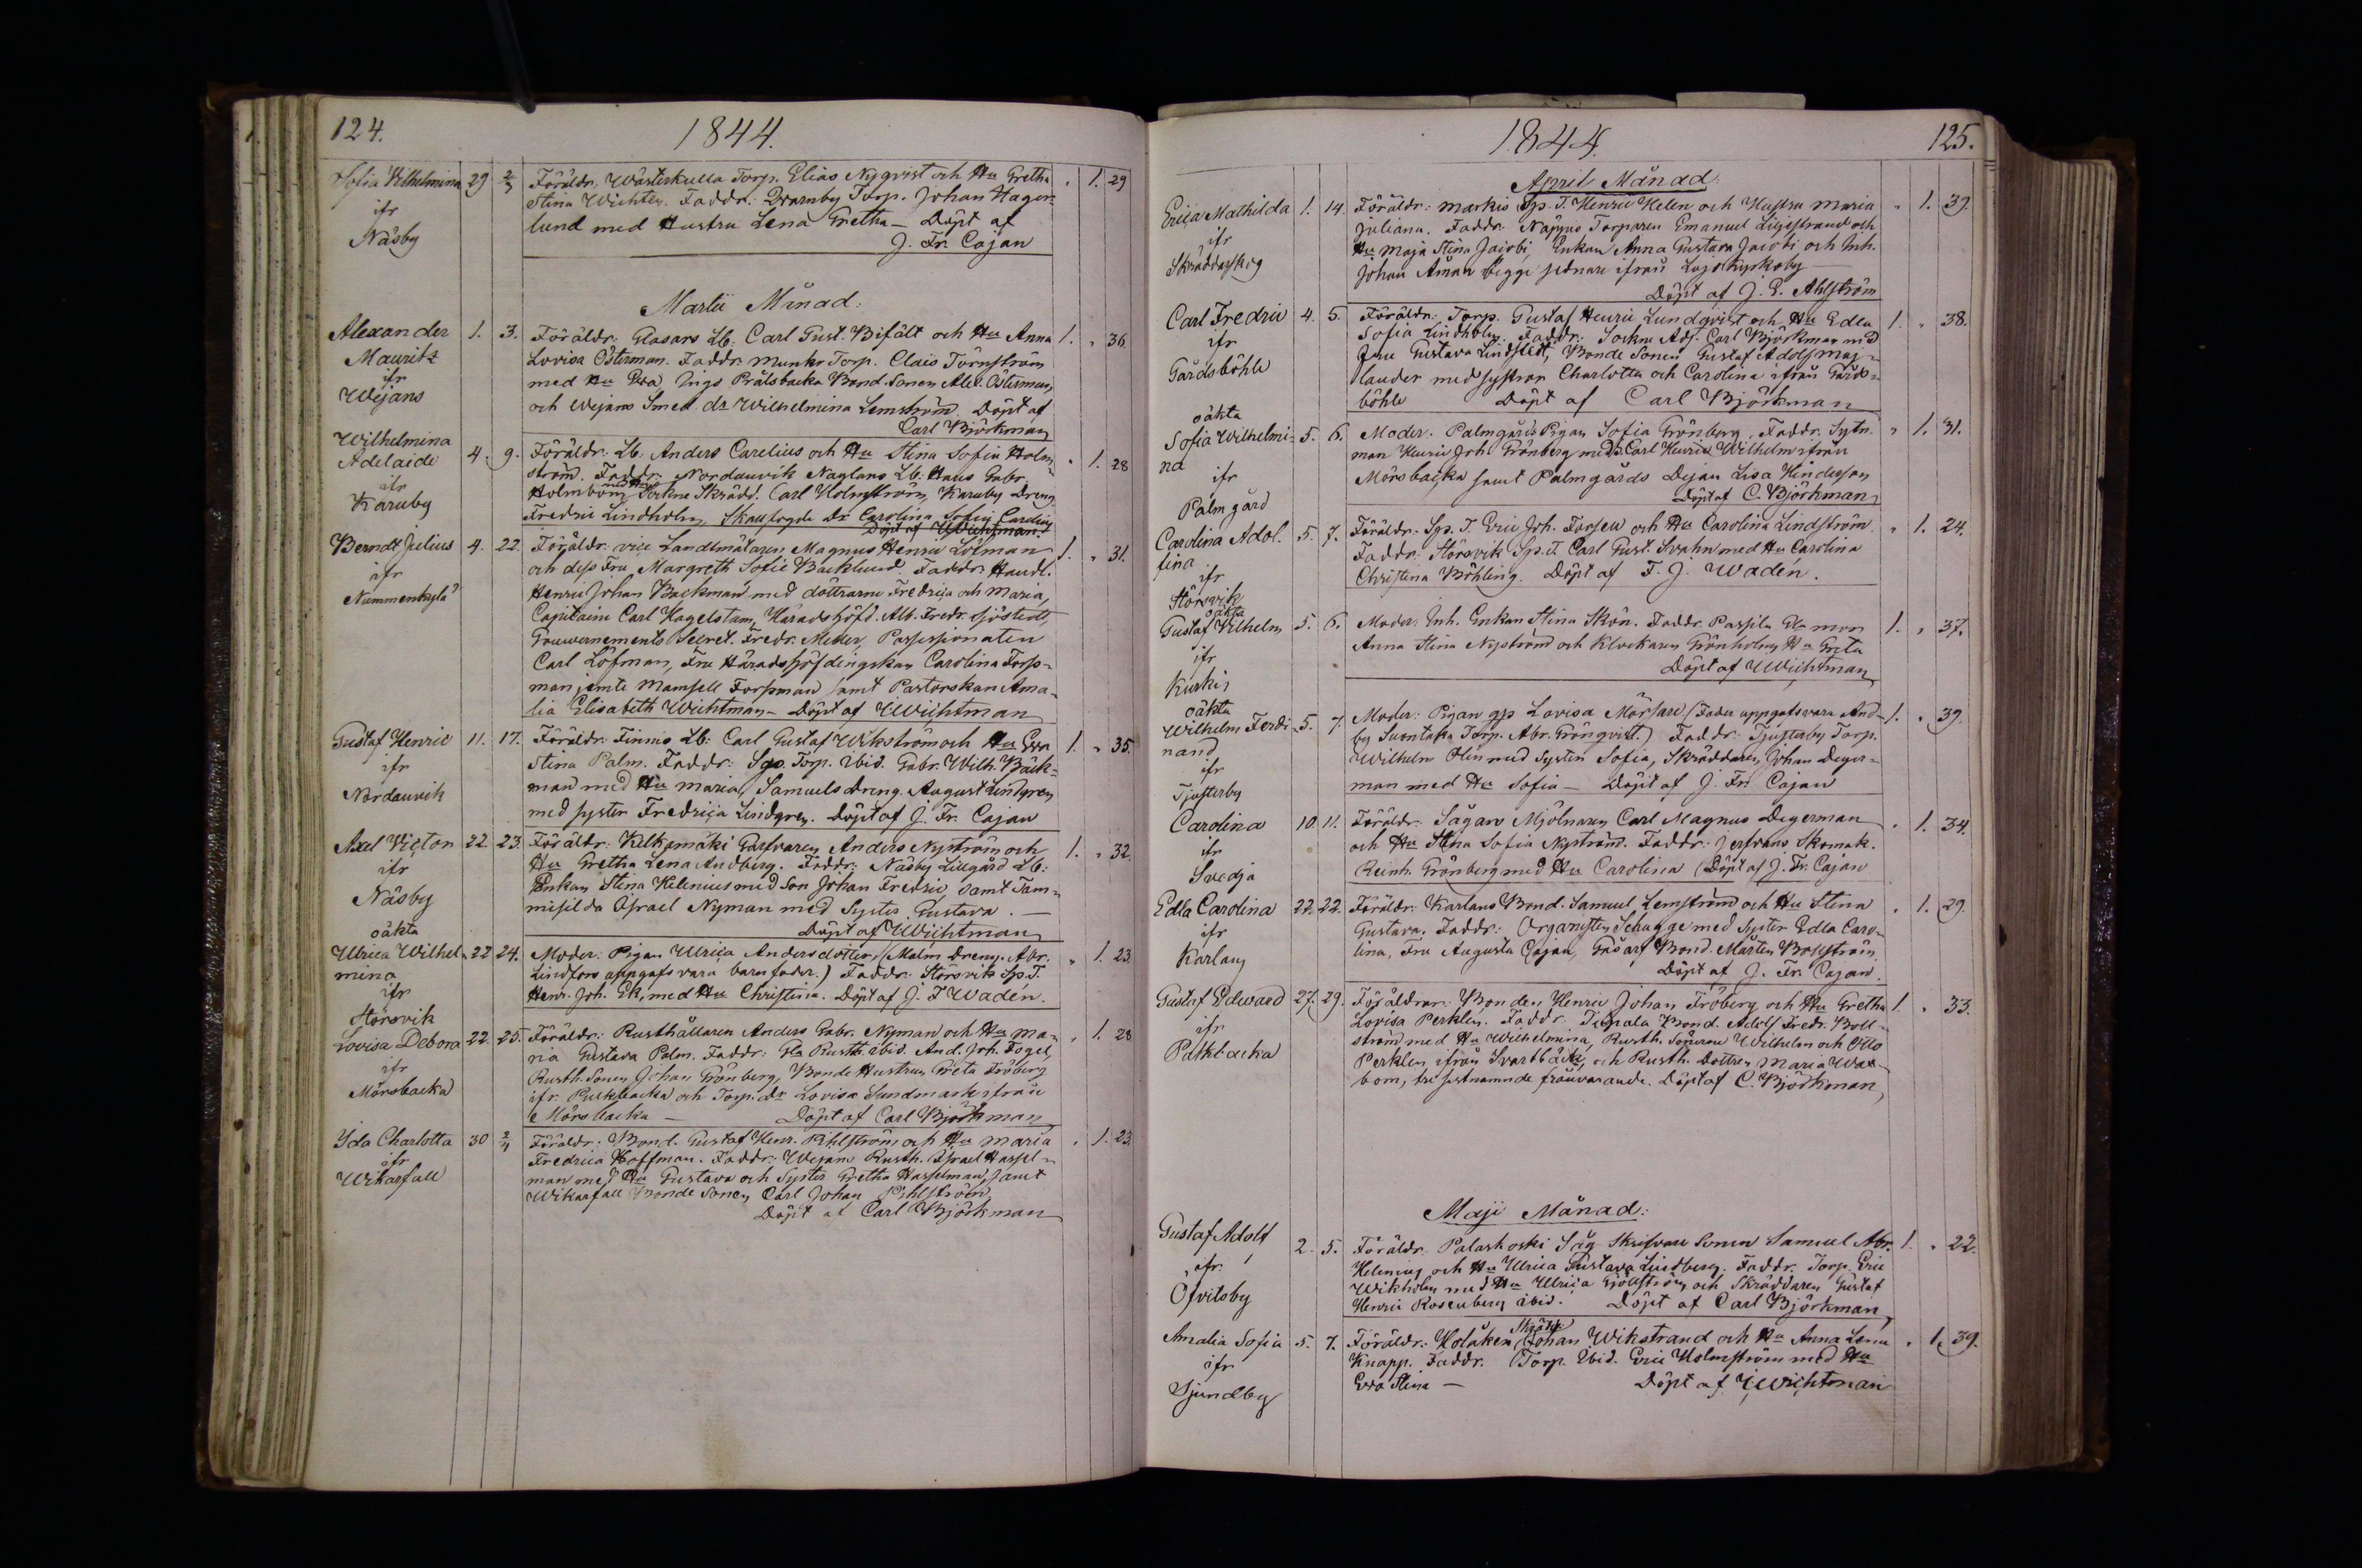 124.
1844.
Sofia Wilhelmina 29 2/3 Föräldr: Wästerkulla Torp. Elias Nyqvist och Hu Gretha " 1. 29
ifr
Stina Wichter. Faddr: Qvarnby Torp. Johan Hager-
Näsby
lund med Hustru Lena Gretha — Döpt af
J. Fr. Cajan
Martii Månad:
Alexander 1. 3. Föräldr: Glasars Lb: Carl Gust. Bifält och Hu Anna 1. " 36
Mauritz
Lovisa Österman. Faddr: Munks Torp. Claës Törnström
ifr
med Hu Eva, Ingo Prålsbacka Bond. Sonen Alex. Österman,
Wejans
och Wejans Smed. dr Wilhelmina Lemström. Döpt af
Carl Björkman
Wilhelmina
Adelaide 4. 9. Föräldr: Lb: Anders Carelius och Hu Stina Sofia Holm- " 1. 28
ifr
ström. Faddr: Nordanvik Naglans Lb. Hans Gabr.
Karuby
Holmbom med Hu Sockne Skrädd. Carl Holmström, Karuby Dreng
Fredric Lindholm, Skaufogde Dr Carolina Sofia Carelius
Döpt af Wichtman
Berndt Julius 4. 22. Föräldr: vice Landtmätaren Magnus Henric Löfman 1. " 31.
ifr
och dess Fru Margreth Sofie Backlund. Faddr: Handl.
Nummenkylä
Henric Johan Backman med döttrarne Fredrica och Maria,
Capitaine Carl Hagelstam, Häradshöfd. Alb. Fredr. Sjöstedt,
Gouvernements Secret. Fredr. Meller, Possessionaten
Carl Löfman, Fru Häradshöfdingskan Carolina Forss-
man jemte Mamsell Forssman samt Pastorskan Ama-
lia Elisabeth Wichtman — Döpt af Wichtman
Gustaf Henric 11. 17. Föräldr: Finnis Lb: Carl Gustaf Wikström och Hu Eva 1. " 35.
ifr
Stina Palm. Faddr: Sgo. Torp. ibid. Gabr. Wilh. Bäck-
Nordanvik
man med Hu Maria, Samuels Dreng. August Lindgren
med syster Fredrica Lindgren. Döpt af J. Fr. Cajan
Axel Victor 22. 23. Föräldr: Kelkamäki Garfvaren Anders Nyström och 1. " 32.
ifr
Hu Gretha Lena Andberg. Faddr: Näsby Lillgård Lb:
Näsby
Enkan Stina Helenius med Son Johan Fredric samt Tam-
misilda Israel Nyman med Syster Gustava. —
Döpt af Wichtman
oäkta
Ulrica Wilhel- 22 24. Moder: Pigan Ulrica Andersdotter, (Malm Dreng. Abr. " 1. 23.
mina
Lindfors uppgafs vara barnfader.) Faddr: Störsvik Sp. T.
ifr
Henr. Joh. Ek, med Hu Christina. Döpt af J. F Wadén.
Störsvik
Lovisa Debora 22. 25. Föräldr: Rusthållaren Anders Gabr. Nyman och Hu Ma- " 1. 28
ifr
ria Gustava Palm. Faddr: Gla Rusth. ibid. And. Joh. Fogel,
Mörsbacka
Rusth. Sonen Johan Grönberg, Bonde Hustrun Greta Fröberg
ifr. Purkbacka och Torp. Dr Lovisa Sandmark ifrån
Mörsbacka — Döpt af Carl Björkman
Ida Charlotta 30 2/4 Föräldr: Bond. Gustaf Henr. Pihlström och Hu Maria " 1. 23.
ifr
Fredrica Hoffman. Faddr: Wejans Rusth. Israel Hassel-
Wikarfall
man med Hu Gustava och Syster Gretha Hasselman, samt
Wikarfall Bonde Sonen Carl Johan Pihlström
Döpt af Carl Björkman
1844.
125.
April Månad:
Erica Mathilda 1. 14. Föräldr: Markis Sgs. T. Henric Helen och Hustru Maria " 1. 39.
ifr
Juliana. Faddr: Näpnus Torparen Emanuel Liljestrand och
Skräddarskog
Hu Maja Stina Jacobi, Enkan Anna Gustava Jacobi och Inh.
Johan Åman begge sednare ifrån Lojo Kyrkoby —
Döpt af J. E. Ahlström
Carl Fredric 4. 5. Föräldr: Torp. Gustaf Henric Lundqvist och Hu Edla 1. " 38.
ifr
Sofia Lindholm. Faddr: Sockne Adj. Carl Björkman med
Gårdsböhle
Fru Gustava Lindstedt, Bonde Sonen Gustaf Adolf Maj-
lander med systrar Charlotta och Carolina ifrån Gårds-
böhle Döpt af Carl Björkman
oäkta
Sofia Wilhelmi- 5. 6. Moder: Palmgårds Pigan Sofia Grönberg. Faddr: Sytn. " 1. 31.
na
man Henric Joh. Grönberg med S. Carl Henric Wilhelm ifrån
ifr
Mörsbacka samt Palmgårds Dejan Lisa Hindersson
Palmgård
Döpt af C. Björkman
Carolina Adol- 5. 7. Föräldr: Sgs. T. Eric Joh. Forsell och Hu Carolina Lindström " 1. 24.
fina
Faddr: Störsvik Sp. T. Carl Gust. Svahn med Hu Carolina
ifr
Christina Böhling. Döpt af F. J. Wadén.
Störsvik
oäkta
Gustaf Wilhelm 5. 6. Moder: Inh. Enkan Stina Skön. Faddr: Passila Gla mor 1. " 37.
ifr
Anna Stina Nyström och Klockaren Grönholms Hu Greta
Kuskis
Döpt af Wichtman
oäkta
Wilhelm Ferdi- 5. 7. Moder: Pigan gs Lovisa Mörsare (Fader uppgafs vara And- 1. " 39.
nand
by Suontaka Torp. Abr. Grönqvist.) Faddr: Tjusterby Torp.
ifr
Wilhelm Olin med Systen Sofia, Skräddaren Johan Deger-
Tjusterby
man med Hu Sofia — Döpt af J. Fr. Cajan
Carolina 10. 11. Föräldr: Sågars Mjölnaren Carl Magnus Degerman " 1. 34.
ifr
och Hu Stina Sofia Nyström. Faddr: Jerfvans Skomak.
Svedja
Reinh. Grönberg med Hu Carolina (Döpt af J. Fr. Cajan
Edla Carolina 22. 22. Föräldr: Karlans Bond. Samuel Lemström och Hu Stina " 1. 29.
ifr
Gustava. Faddr: Organisten Schugge med Syster Edla Caro-
Karlang
lina, Fru Augusta Cajan, Gåsarf Bond. Mårten Bollström
Döpt af J. Fr. Cajan.
Gustaf Edward 27. 29. Föräldrar: Bonden Henric Johan Fröberg och Hu Gretha 1. " 33.
ifr
Lovisa Perklen. Faddr: Tupala Bond. Adolf Fredr. Boll-
Palkbacka
ström med Hu Wilhelmina, Rusth. Sönerne Wilhelm och Otto
Perklen ifrån Svartbäck, och Rusth. Dottren Maria Wax-
bom, tre sistnamnde frånvarande. Döpt af C. Björkman
Maji Månad:
Gustaf Adolf 2. 5. Föräldr: Palaskoski Såg Skrifvare Sonen Samuel Abr. 1. " 22.
ifr.
Helenius och Hu Ulrica Gustava Lindberg. Faddr: Torp. Eric
Öfvitsby
Wikholm med Hu Ulrica Sjöström, och Skräddaren Gustaf
Henric Rosenberg ibid. Döpt af Carl Björkman
Amalia Sofia 5. 7. Föräldr: Kolåken Johan Wikstrand och Hu Anna Lena " 1. 39.
ifr
Knapp. Faddr: Torp. Ibid. Eric Holmström med Hu
Sjundby
Eva Stina — Döpt af Wichtman